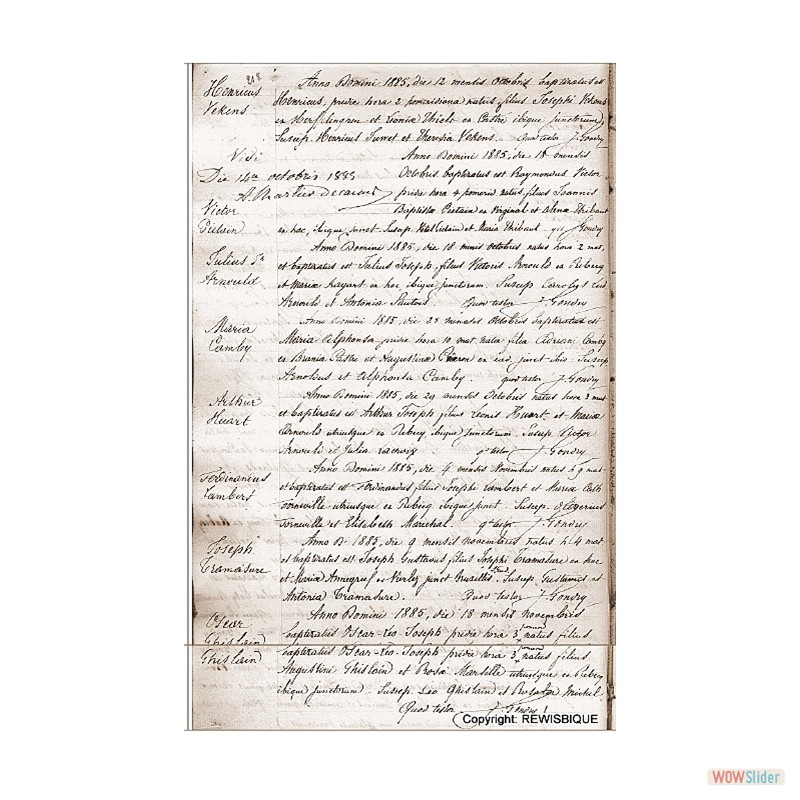 218
Henricus
Vekens
Anno Domini 1885, die 12 mensis Octobris baptizatus est
Henricus, pridie hora 2 pomeridiana natus, filius Josephi Vekens
ex et in Castre ibique junctorum,
Suscep. Henricus et Theresia Vekens. Quod testor J. Gondry
Vidi
Die 14a octobris 1885
decanus
Victor
Anno Domini 1885, die 18 mensis
Octobris baptizatus est Raymundus Victor
pridie hora 4 pomerid. natus, filius Joannis
Baptistæ ex Virginal et Thibaut
ex hac, ibique junct. Suscep. et Maria Thibaut. J. Gondry
Julius Jh
Arnould
Anno Domini 1885, die 18 mensis octobris natus hora 2 mat.
et baptizatus est Julius Joseph, filius Victoris Arnould ex Rebecq
et Mariæ Hayart ex hac, ibique junctorum. Suscep.
Arnould et Antonia Quod testor J. Gondry
Maria
Camby
Anno Domini 1885, die 25 mensis Octobris baptizata est
Maria Alphonsa pridie hora 10 mat. nata filia Adriani Camby
ex Brania et Augustina ex ead. junct. ibi. Suscep.
Arnoldus et Alphonsa Camby. quod testor J. Gondry
Arthur
Huart
Anno Domini 1885, die 29 mensis Octobris natus hora 3 mat.
et baptizatus est Arthur Joseph filius Huart et Mariæ
Arnould utriusque ex Rebecq ibique junctorum. Suscep. Victor
Arnould et Julia qd testor J. Gondry
Ferdinandus
Lambert
Anno Domini 1885, die 4 mensis Novembris natus h 9 mat.
et baptizatus est Ferdinandus filius Josephi Lambert et Mariæ Cath.
Torneville utriusque ex Rebecq ibique junct. Suscep.
Torneville et Elisabeth Marechal. J. Gondry
Joseph
Tramasure
Anno D. 1885, die 9 mensis novembris natus h 4 mat
et baptizatus est Joseph Gustavus filius Josephi Tramasure ex hac
et Mariæ ex junct. Bruxellis. Suscep. Gustavus et
Antonia Tramasure. Quod testor J. Gondry
Oscar
Ghislain
Anno Domini 1885, die 18 mensis novembris
baptizatus Oscar-Léo-Joseph pridie hora 3 pomerid natus filius
Ghislain
baptizatus Oscar-Léo-Joseph pridie hora 3 pomerid natus filius
Augustini Ghislain et Rosæ utriusque ex Rebecq
ibique junctorum. Suscep. Leo Ghislain et Michel.
Quod testor J. Gondry
Copyright: REWISBIQUE
WOWSlider